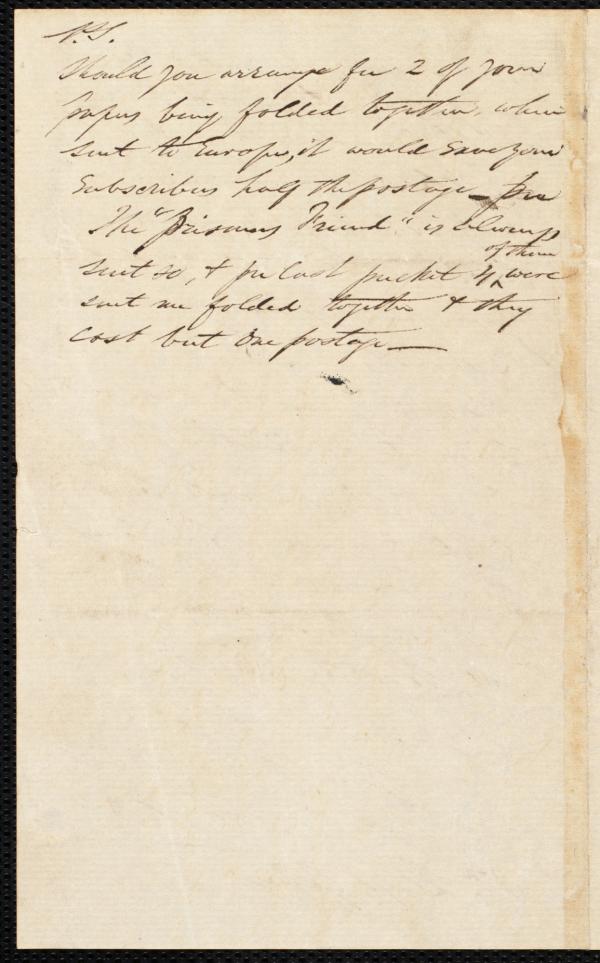 P.S.
Should you arrange for 2 of your
papers being folded together, when
sent to Europe, it would save your
Subscribers half the postage —
The "Prisoners Friend" is always
sent so, & pr last packet 4 of them were
sent me folded together & they
cost but One postage —